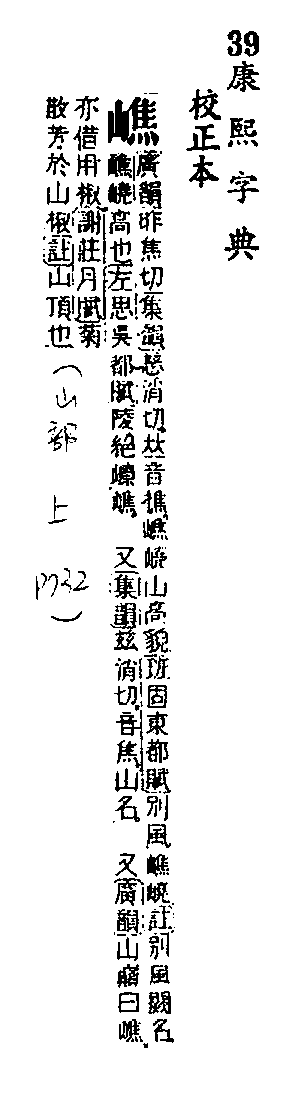 39康熙字典
校正本
嶕
廣韻昨焦切集韻慈消切𠀤音樵嶕嶢山高貌班固東都賦別風嶕嶢註別風闕名
嶕嶢高也左思吳都賦陵絕嶚嶕。又集韻兹消切音焦山名。又廣韻山巔曰嶕
亦借用椒謝莊月賦菊
散芳於山椒註山頂也
(山部 上 P732)